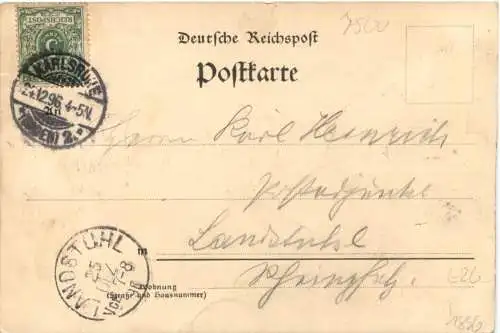 7500
Deutsche Reichspost
Postkarte
REICHSPOST
KARLSRUHE
24.12.96 4-5N.
(BADEN) 2.
Herrn Karl Heinrich
Postadjunkt
Landstuhl
LANDSTUHL
25
7-8
Rheinpfalz
Wohnung
(Straße und Hausnummer)
1896